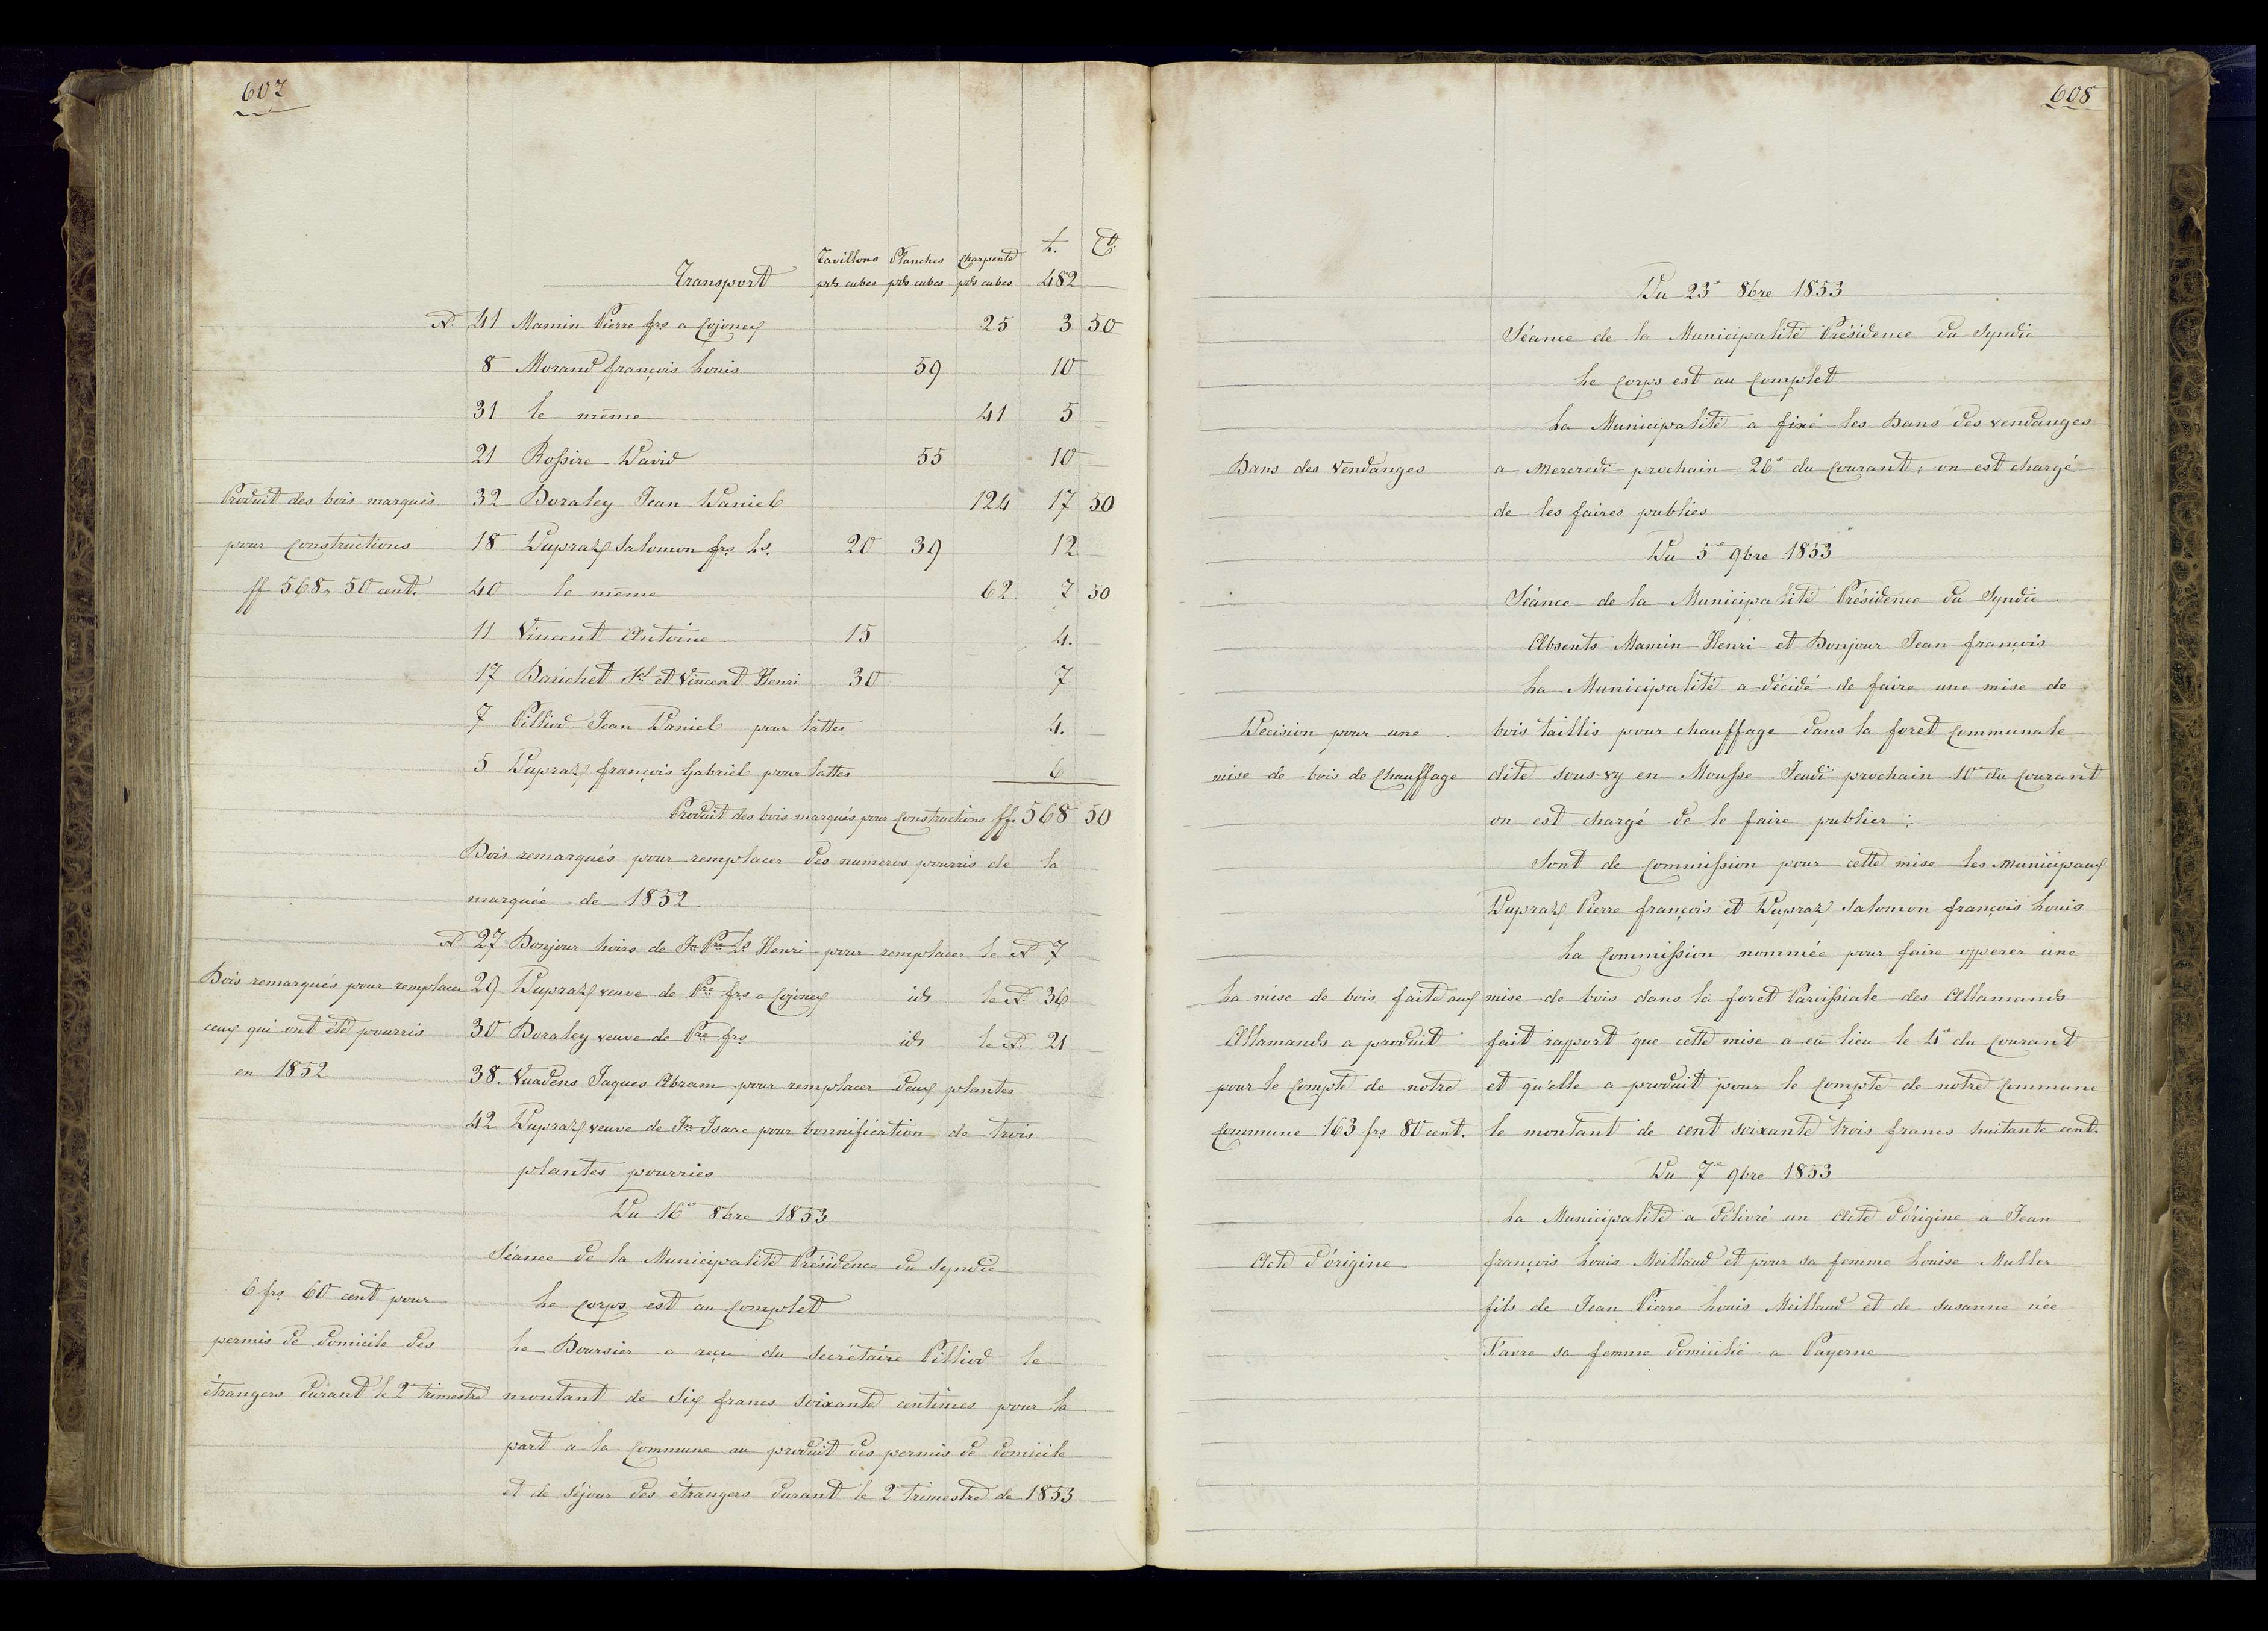 607
Tavillons Planches Charpente f. Ct.
Transport pds cubes pds cubes pds cubes 482
N. 41 Mamin Pierre frs a Cojonex 25 3 50
8 Morand françois Louis 59 10
31 le même 41 5
21 Rossire David 55 10
Produit des bois marqués 32 Doraley Jean Daniel 124 17 50
pour constructions 18 Dupraz Salomon frs Ls. 20 39 12
ff 568„ 50 cent. 40 le même 62 7 50
11 Vincent Antoine 15 4.
17 Barichet Sel et Vincent Henri 30 7
7 Pilliod Jean Daniel pour lattes 4.
5 Dupraz françois Gabriel pour lattes 6
Produit des bois marqués pour Constructions ff. 568 50
Bois remarqués pour remplacer des numeros pourris de la
marquée de 1852
N 27 Bonjour hoirs de Jn Pre Ls Henri pour remplacer le N 7
Bois remarqués pour remplacer 29 Dupraz veuve de Pre frs a Cojonex id le N. 36
ceux qui ont été pourris 30 Doraley veuve de Pre frs id le N. 21
en 1852 38. Vuadens Jaques Abram pour remplacer deux plantes
42 Dupraz veuve de Jn Isaac pour bonnification de trois
plantes pourries
Du 16e 8bre 1853
Séance de la Municipalité Présidence du Syndic
6 frs 60 cent pour Le Corps est au Complet
permis de domicile des Le Boursier a reçu du Secrétaire Pilliod le
étrangers durant le 2e trimestre montant de Six francs soixante centimes pour la
part a la Commune au produit des permis de domicile
et de séjour des étrangers durant le 2e trimestre de 1853
608
Du 23e 8bre 1853
Séance de la Municipalité Présidence du Syndic
Le Corps est au Complet
La Municipalité a fixé les Bans des vendanges
Bans des Vendanges a Mercredi prochain 26e du Courant; on est chargé
de les faires publies
Du 5e 9bre 1853
Séance de la Municipalité Présidence du Syndic
Absents Mamin Henri et Bonjour Jean françois
La Municipalité a décidé de faire une mise de
Décision pour une bois taillis pour chauffage dans la foret Communale
mise de bois de Chauffage dite sous-vy en Mousse Jeudi prochain 10e du Courant
on est chargé de le faire publier;
Sont de Commission pour cette mise les Municipaux
Dupraz Pierre françois et Dupraz Salomon françois Louis
La Commission nommée pour faire opperer une
La mise de bois faite aux mise de bois dans la foret Parissiale des Allamands
Allamands a produit fait rapport que cette mise a eû lieu le 4e du Courant
pour le Compte de notre et qu'elle a produit pour le Compte de notre Commune
Commune 163 frs 80 cent. le montant de cent soixante trois francs huitante cent.
Du 7e 9bre 1853
La Municipalité a délivré un Acte d'origine a Jean
Acte d'origine françois Louis Meillaud et pour sa femme Louise Muller
fils de Jean Pierre Louis Meillaud et de Susanne née
Favre sa femme domicilié a Payerne